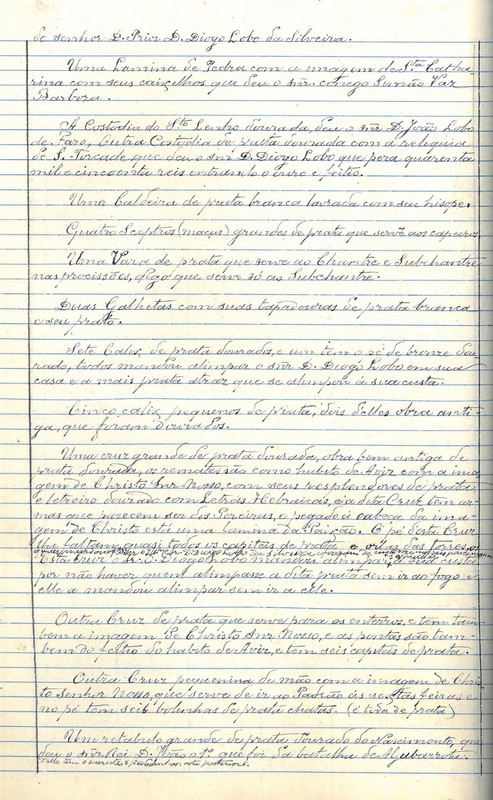 do senhor D. Prior D. Diogo Lobo da Silveira.
Uma Lamina de Pedra com a imagem de S.ta Catha-
rina com seus caixilhos que deu o snr. conego Simão Vaz
Barboza.
A Custodia do S.to Lenho dourada, deu o snr D. João Lobo
de Faro, Outra Custodia de prata dourada com a reliquia
de S. Torcade que deu o snr D. Diogo Lobo que pera quarenta
mil e cincoenta reis entrando o ouro e feitio.
Uma Caldeira de prata branca lavrada com seu hisope.
Quatro Sceptros (maças) grandes de prata que serve aos capeiros.
Uma Vara de prata que serve ao Chantre e Subchantre
nas procissões, digo que serve só ao Subchantre.
Duas Galhetas com suas tapadouras de prata branca
e seu prato.
Sete Calix de prata dourados, e um tem o pé de bronze dou-
rado, todos mandou alimpar o snr D. Diogo Lobo em sua
casa e a mais prata atraz que se alimpou á sua custa.
Cinco calix pequenos de prata, dois d'elles obra anti-
ga, que foram dourados.
Uma cruz grande de prata dourada, obra bem antiga de
prata dourada, os remates são como habito de Aviz com a ima-
gem de Christo Snr Nosso, com seus resplendores de prata,
e letreiro dourado com Letras Hebraicas, e a dita Cruz tem ar-
mas que parecem ser dos Pereiras, e pegado á cabeça da ima-
gem de Christo está uma lamina da Paixão. O pé desta Cruz
lhe faltam quasi todos os capiteis de prata e das torres,
Esta cruz o sr. D. Diogo Lobo mandou alimpar á sua custa
por não haver quem alimpasse a dita prata sem ir ao fogo e
elle a mandou alimpar sem ir a elle.
Outra Cruz de prata que serve para os enterros, e tem tam-
bem a imagem de Christo snr Nosso, e as pontas são tam-
bem do feitio do habito de Aviz, e tem seis capiteis de prata.
Outra Cruz pequenina de mão com a imagem de Chris-
to senhor Nosso, que serve de ir ao Padrão ás sextas feiras e
no pé tem seis bolinhas de prata chatas. (é toda de prata)
Um retabulo grande de prata dourado do Nascimento, que
deu o snr Rei D. João o 1º que foi da batalha de Aljubarrota.